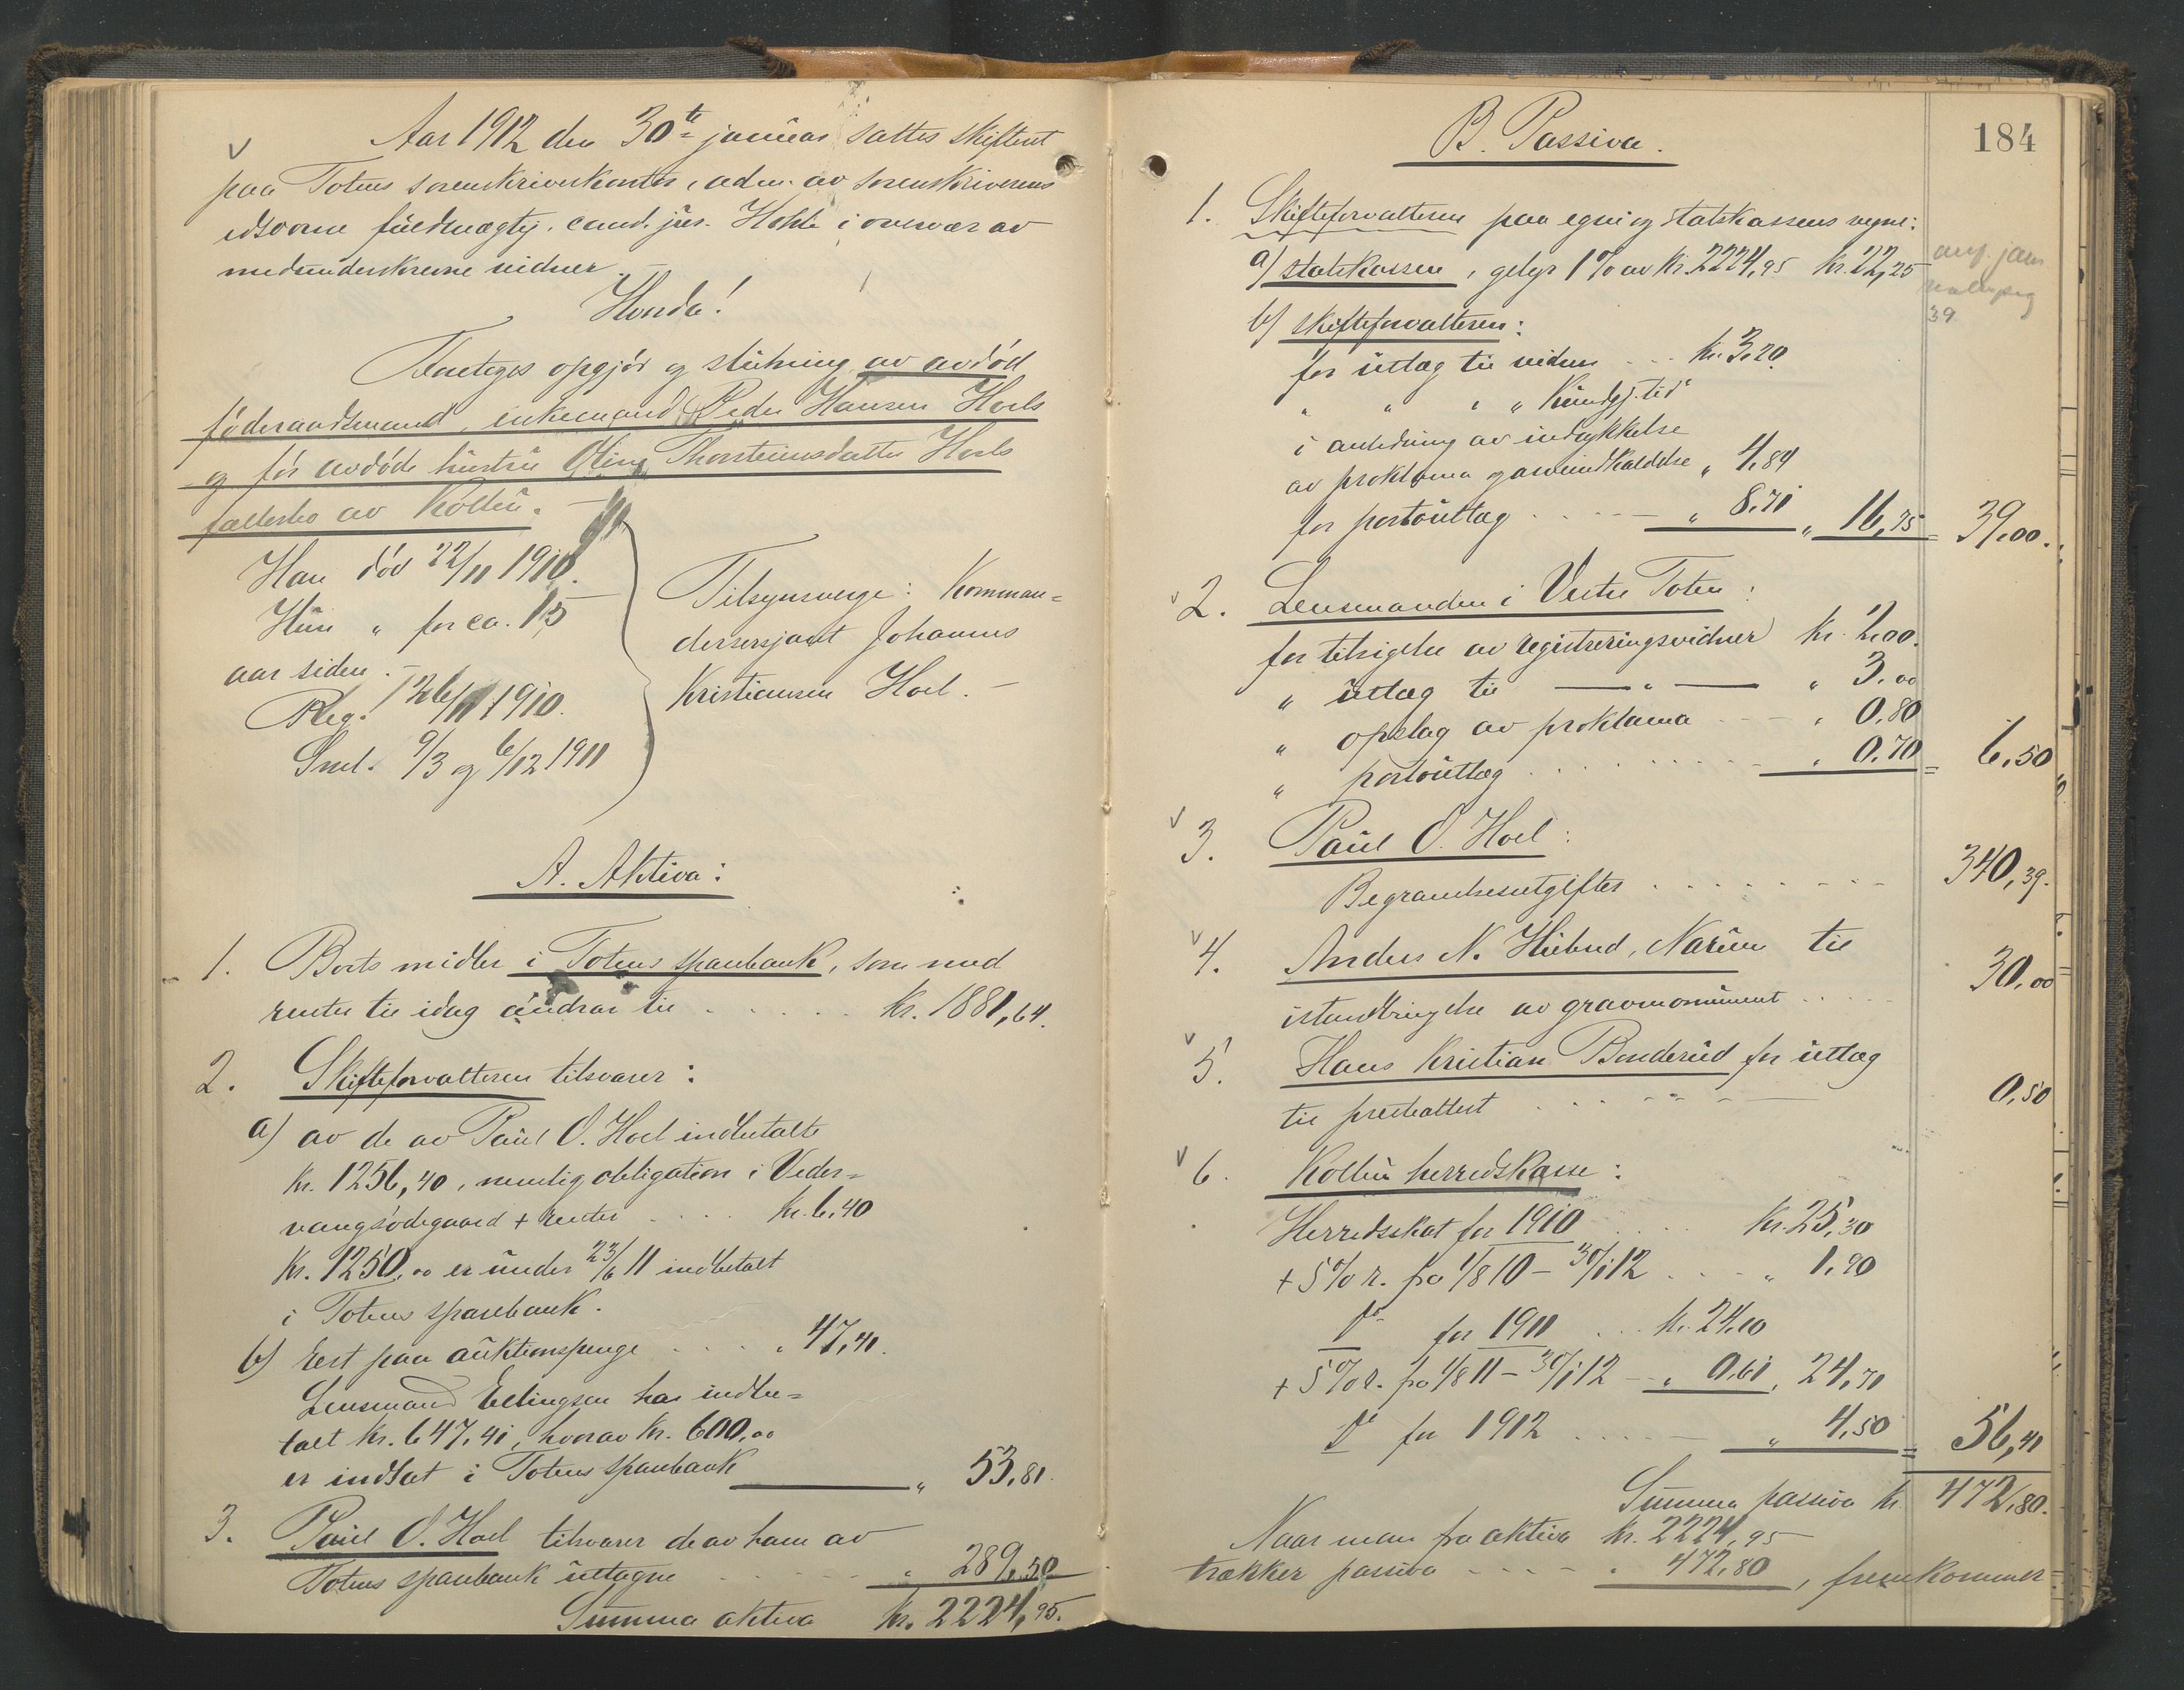 Aar 1912 den 30te januar sattes skifteret
paa Totens sorenskriverkontor, adm. av sorenskriverens
edsvorne fuldmægtig, cand. jur. Hohle i overvær av
medunderskrevne vidner. –
Hvorda!
Foretages opgjør og slutning av avdød
føderaadsmand, enkemand Peder Hansen Hoels
og før avdøde hustru Oline Thorsteinsdatter Hoels
fællesbo av Kolbu. –
Han død 22/11 1910.
Hun " for ca. 15
aar siden. –
Reg. 1910.
Sml. 9/3 og 6/12 1911
Tilsynsverge: Komman=
dersersjant Johannes
Kristiansen Hoel. –
A. Aktiva:
1. Boets midler i Totens sparebank, som med
renter til idag andrar til . . . . . kr. 1881,64.
2. Skifteforvalteren tilsvarer:
a) av de av Paul O. Hoel indbetalte
kr. 1256,40, nemlig obligation i Veder=
vangsødegaard + renter . . . . kr. 6.40
Kr. 1250,00 er under 23/6 11 indbetalt
i Totens sparebank.
b) rest paa auktionspenge . . . . " 47,41.
Lensmand Ellingsen har indbe=
talt kr. 647,41, hvorav kr. 600,00
er indsat i Totens sparebank " 53,81.
3. Paul O. Hoel tilsvarer de av ham av
Totens sparebank uttagne . . . . " 289,50
Summa aktiva kr. 2224,95.
184
B. Passiva.
1. Skifteforvalteren paa egne og statskassens vegne:
a) statskassen, gebyr 1% av kr. 2224,95 kr. 22,25
39
b) skifteforvalteren:
for utlæg til vidner . . . kr. 3.20
" " " " Kundgj. tid
i anledning av indrykkelse
av proklama og arveindkaldelse " 4,84
for portoutlæg . . . . . " 8,71 " 16,75 = 39,00.
2. Lensmanden i Vestre Toten:
for tilsigelse av registreringsvidner kr. 2,00.
" utlæg til — " — " 3.00
" opslag av proklama . . . " 0,80
" portoutlæg . . . . . . . " 0.70 = 6,50
3. Paul O. Hoel:
Begravelsesutgifter . . . . . . . . 340,39.
4. Anders N. Hübred, Narum til
istandbringelse av gravmonument . . . . 30,00
5. Hans Kristian Bonderud for utlæg
til presteattest . . . . . . . 0,50
6. Kolbu herredskasse:
Herredsskat for 1910 . . . . kr. 25,30
+ 5% r. fra 1/8 10 – 30/1 12 . . . . " 1.90
Do for 1911 . . . kr. 24,10
+ 5% r. fra 1/8 11 – 30/1 12 – " 0,61 " 24,71
Do for 1912 . . . . . " 4,50 = 56,41
Summa passiva kr. 472,80.
Naar man fra aktiva kr. 2224,95
trækker passiva . . . . " 472,80, fremkommer